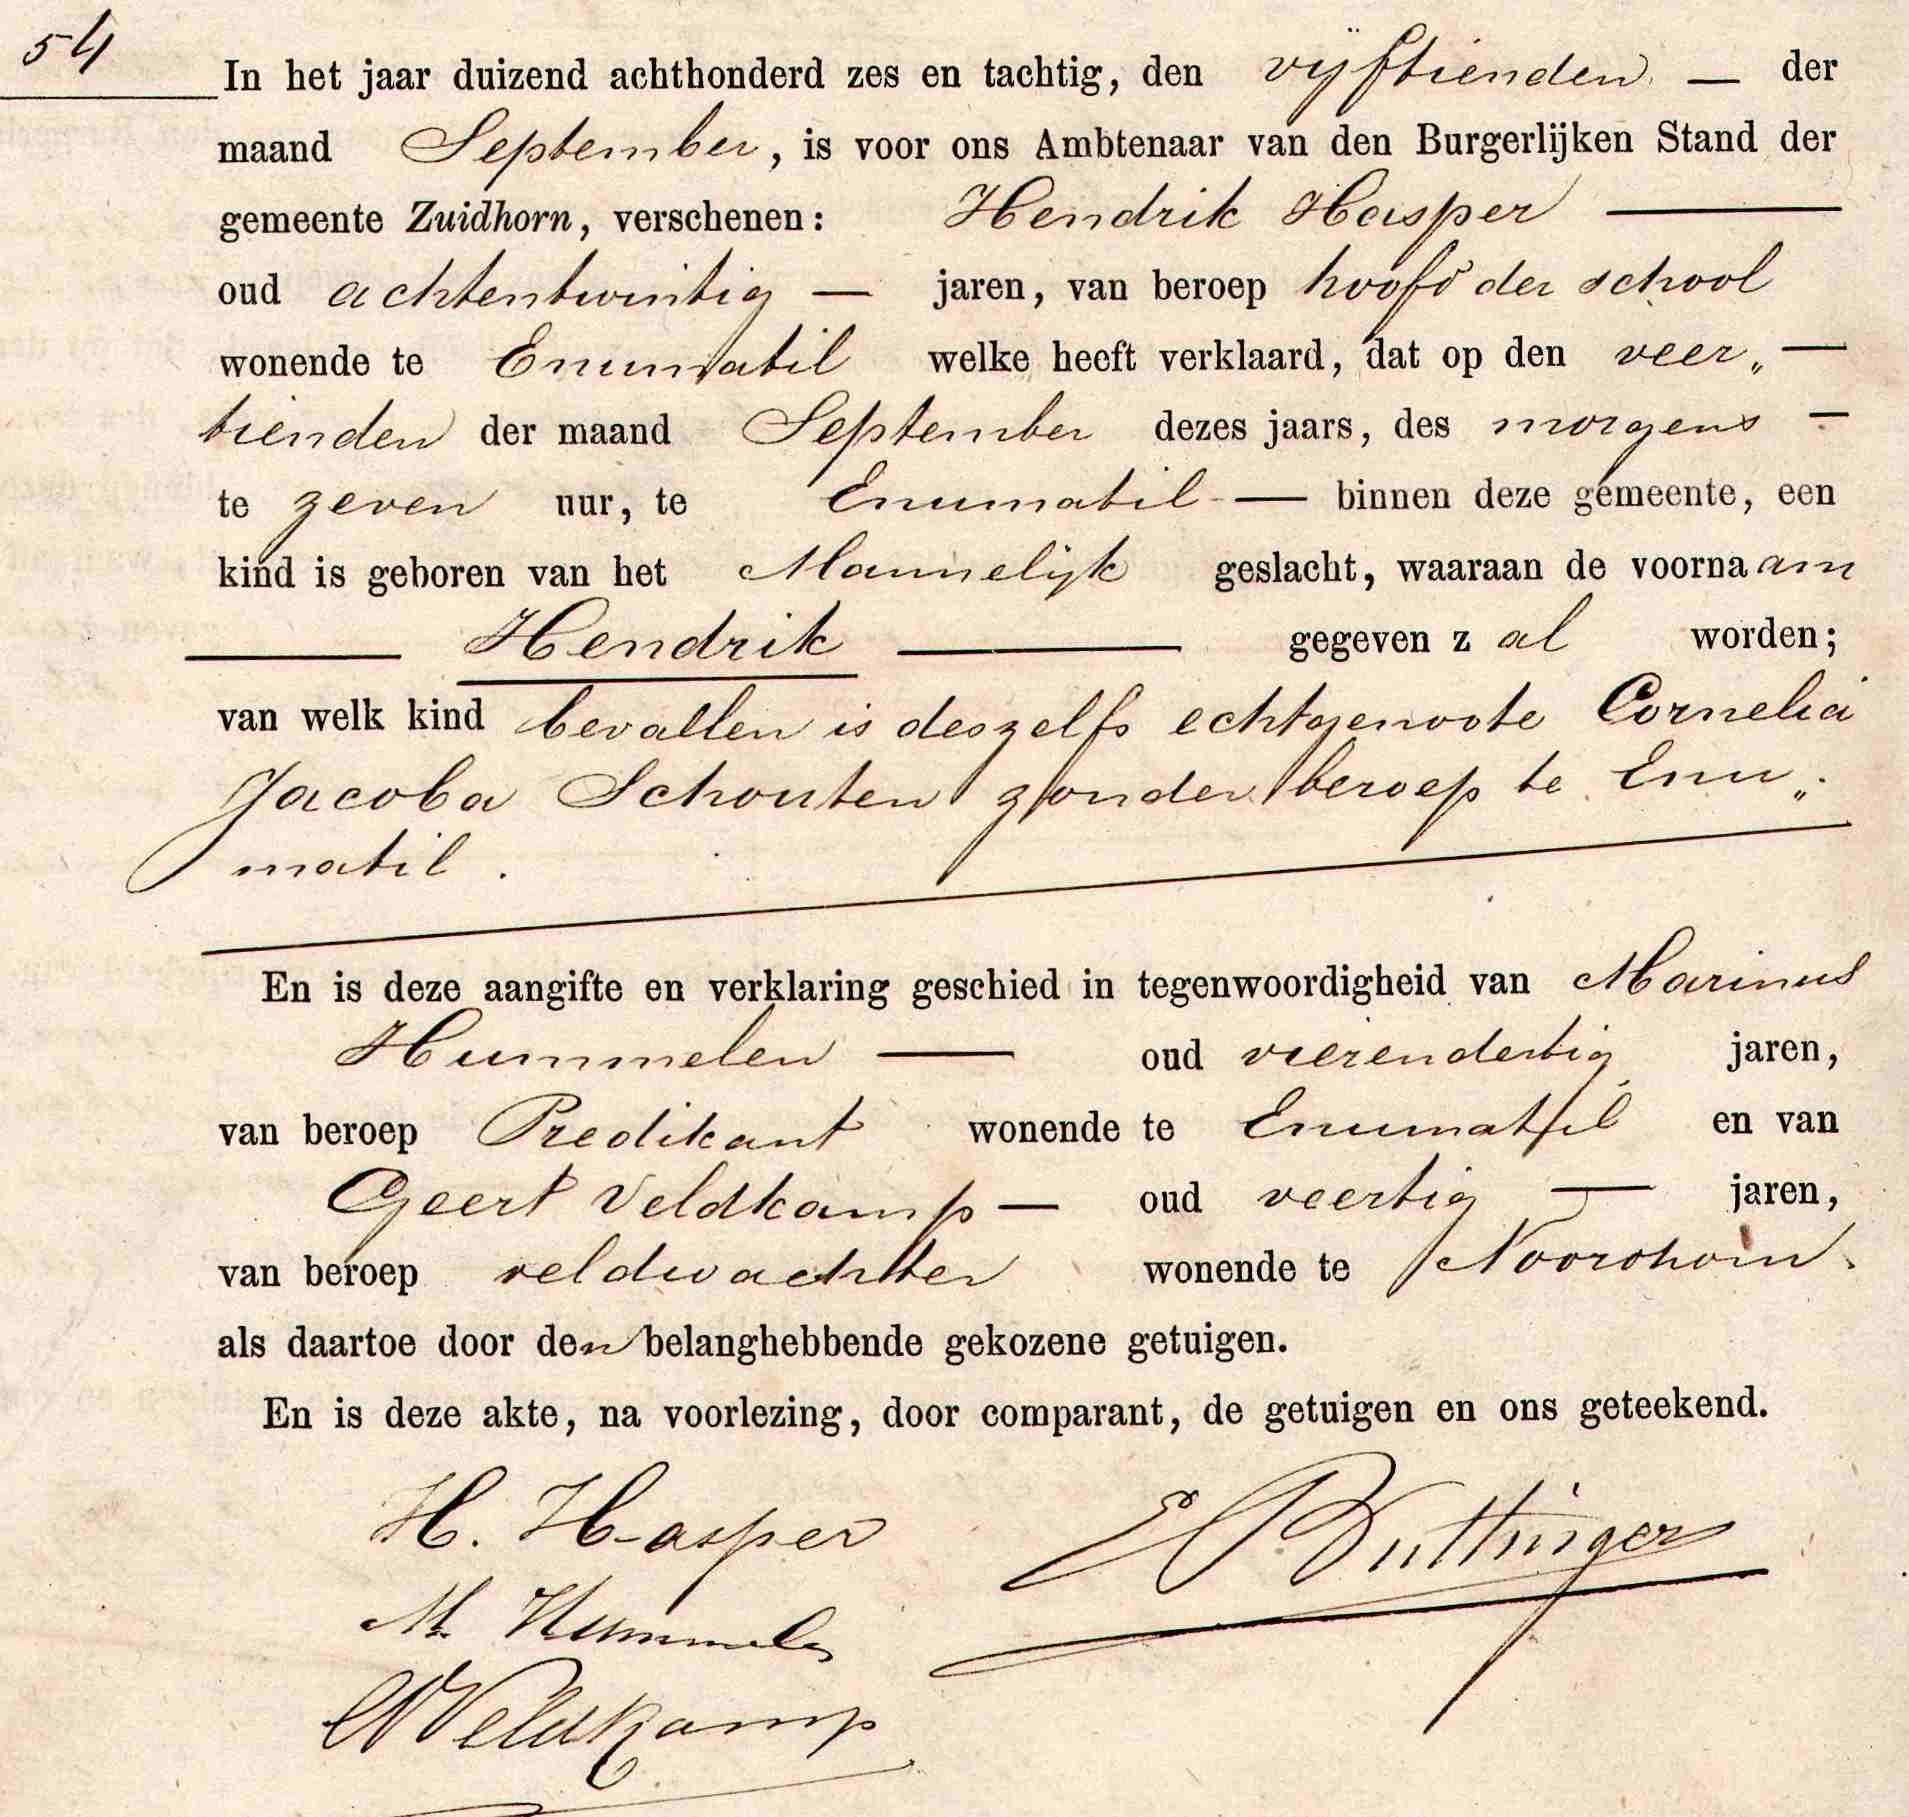 54
In het jaar duizend achthonderd zes en tachtig, den vijftienden — der
maand September, is voor ons Ambtenaar van den Burgerlijken Stand der
gemeente Zuidhorn, verschenen: Hendrik Hasper —
oud achtentwintig — jaren, van beroep hoofd der school
wonende te Enumatil welke heeft verklaard, dat op den veer„ —
tienden der maand September dezes jaars, des morgens —
te zeven uur, te Enumatil — binnen deze gemeente, een
kind is geboren van het Mannelijk geslacht, waaraan de voornaam
— Hendrik — gegeven zal worden;
van welk kind bevallen is deszelfs echtgenoote Cornelia
Jacoba Schouten zonder beroep te Enu„
matil.
En is deze aangifte en verklaring geschied in tegenwoordigheid van Marinus
Hummelen — oud vierendertig jaren,
van beroep Predikant wonende te Enumatil en van
Geert Veldkamp — oud veertig — jaren,
van beroep veldwachter wonende te Noordhorn.
als daartoe door den belanghebbende gekozene getuigen.
En is deze akte, na voorlezing, door comparant, de getuigen en ons geteekend.
H. Hasper
M. Hummelen
Veldkamp